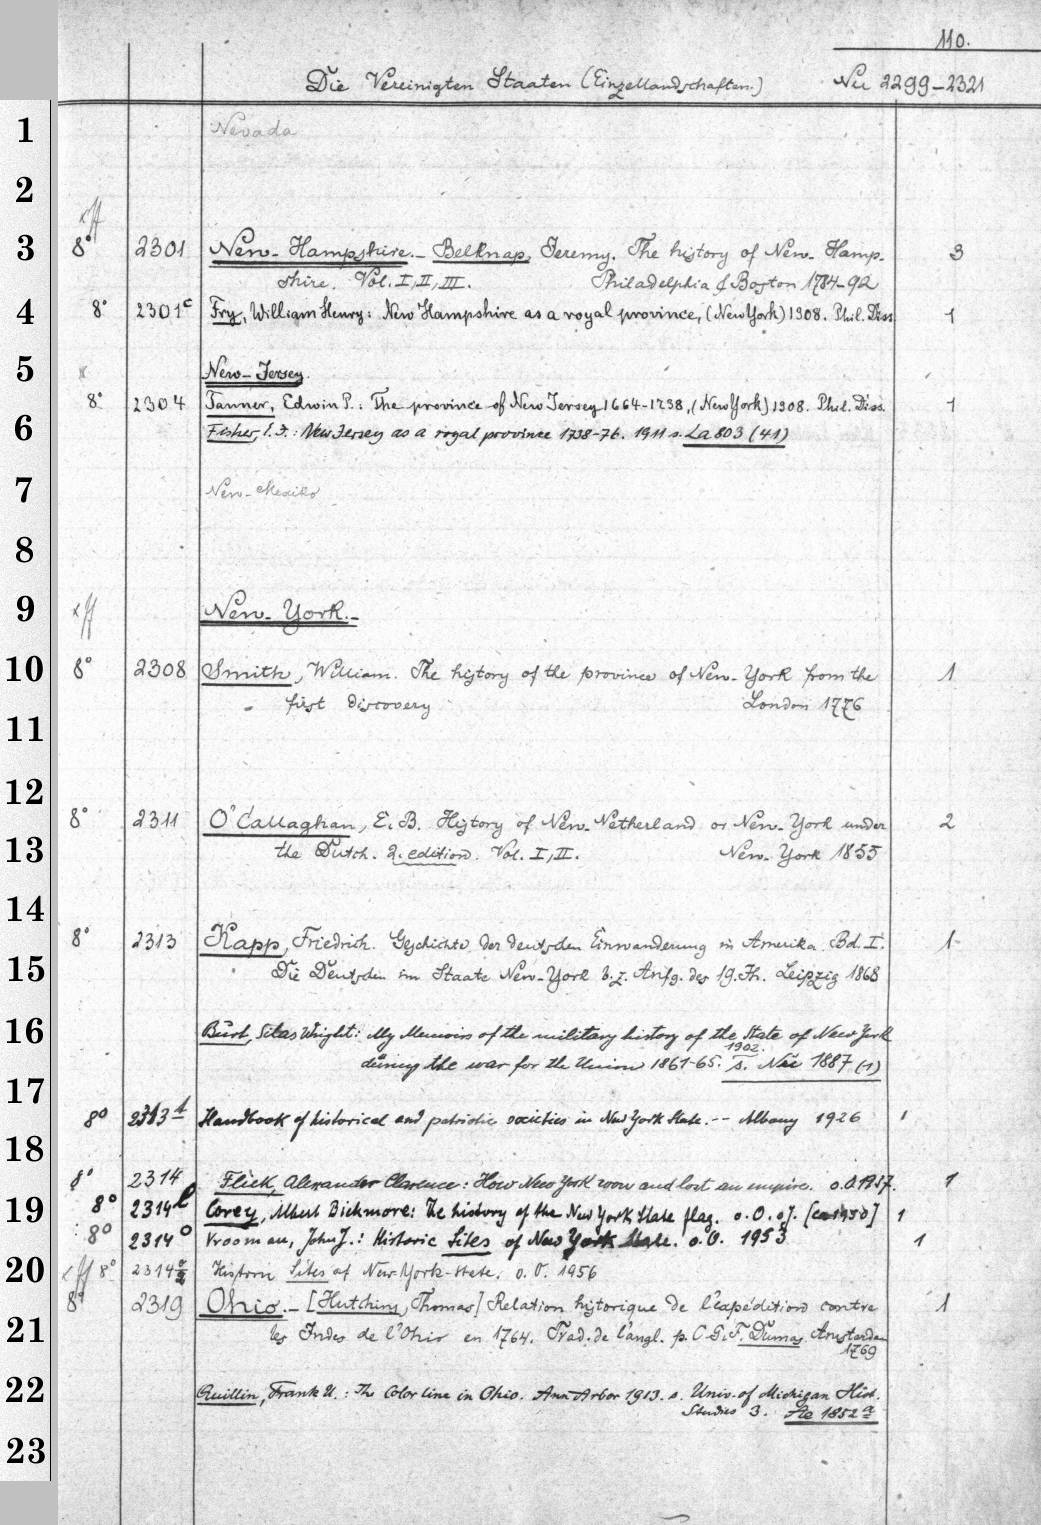 110.
Die Vereinigten Staaten (Einzellandschaften.) Nu 2299-2321
1 Nevada
2
3 8° 2301 New-Hampshire.- Belknap, Jeremy. The history of New-Hamp- 3
shire. Vol. I, II, III. Philadelphia & Boston 1784-92
4 8° 2301c Fry, William Henry: New Hampshire as a royal province, (New York) 1908. Phil. Diss. 1
5 New-Jersey.
8° 2304 Tanner, Edwin P.: The province of New Jersey 1664-1738, (New York) 1908. Phil. Diss. 1
6 Fisher, E. J.: New Jersey as a royal province 1738-76. 1911 s. La 803 (41)
7 New-Mexiko
8
9 New-York.-
10 8° 2308 Smith, William. The history of the province of New-York from the 1
first discovery London 1776
11
12
8° 2311 O'Callaghan, E. B. History of New-Netherland or New-York under 2
13 the Dutch. 2. edition. Vol. I, II. New-York 1855
14
8° 2313 Kapp, Friedrich. Geschichte der deutschen Einwanderung in Amerika. Bd. I. 1
15 Die Deutschen im Staate New-York b. z. Anfg. des 19. Jh. Leipzig 1868
16 Burt, Silas Wright: My Memoirs of the military history of the State of New York
during the war for the Union 1861-65. 1902. s. Nu 1887 (1)
17
8° 2313 Handbook of historical and patriotic societies in New York State. -- Albany 1926 1
18
8° 2314 Flick, Alexander Clarence: How New York won and lost an empire. o.O. 1937. 1
19 8° 2314b Corey, Albert Bickmore: The history of the New York State flag. o. O. o J. [ca 1950] 1
8° 2314c Vrooman, John J.: Historic Sites of New York State. o. O. 1953 1
20 8° 2314 Historic Sites of New York State. o. O. 1956
8° 2319 Ohio.- [Hutchins, Thomas] Relation historique de l'expédition contre 1
21 les Indes de l'Ohio en 1764. Trad. de l'angl. p. C. G. F. Dumas. Amsterdam
1769
22 Quillin, Frank U.: The Color line in Ohio. Ann Arbor 1913. s. Univ. of Michigan Hist.
Studies 3. Ae 1852a
23